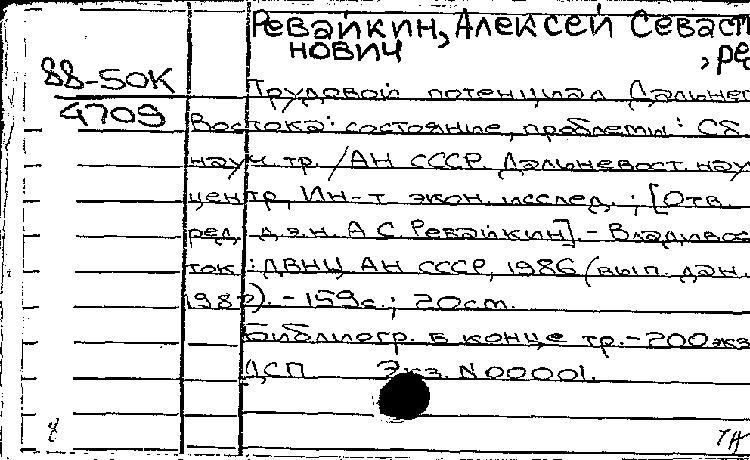 Ревайкин, Алексей Севаст
нович
, ре
88-50К
4709
Трудовой потенциал Дальнег
Востока: состояние, проблемы: Сб.
науч. тр. / АН СССР. Дальневост. нау
центр, Ин-т экон. исслед. ; [Отв.
ред. д.э.н. А С. Ревайкин]. - Владивос
ток : ДВНЦ АН СССР, 1986 (вып. дан.
1987). - 159с. ; 20см.
Библиогр. в конце тр. - 200экз
ДСП Экз. N00001.